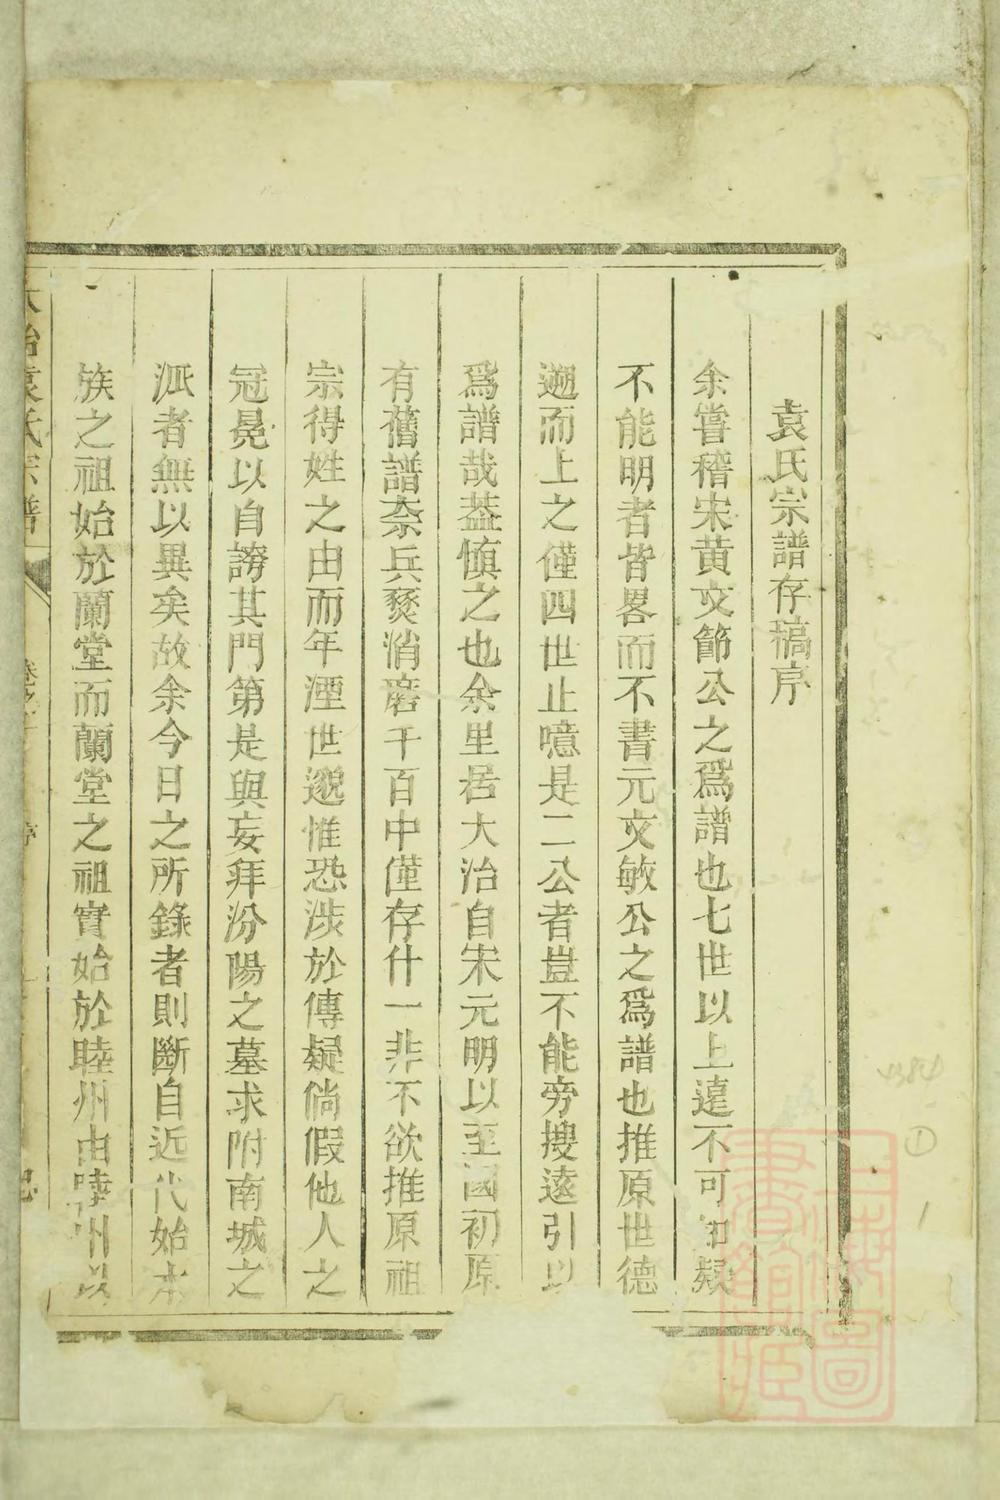 袁氏宗譜存稿序
余嘗稽宋黄文節公之爲譜也七世以上遠不可知疑
不能明者皆畧而不書元文敏公之爲譜也推原世德
遡而上之僅四世止噫是二公者豈不能旁搜遠引以
爲譜哉葢慎之也余里居大冶自宋元明以至國初原
有舊譜奈兵燹消磨千百中僅存什一非不欲推原祖
宗得姓之由而年湮世邈惟恐涉於傳疑倘假他人之
冠冕以自誇其門第是與妄拜汾陽之墓求附南城之
派者無以異矣故余今日之所錄者則斷自近代始本
族之祖始於蘭堂而蘭堂之祖實始於睦州由睦州以
大冶袁氏宗譜 卷之 序
上海圖書館藏